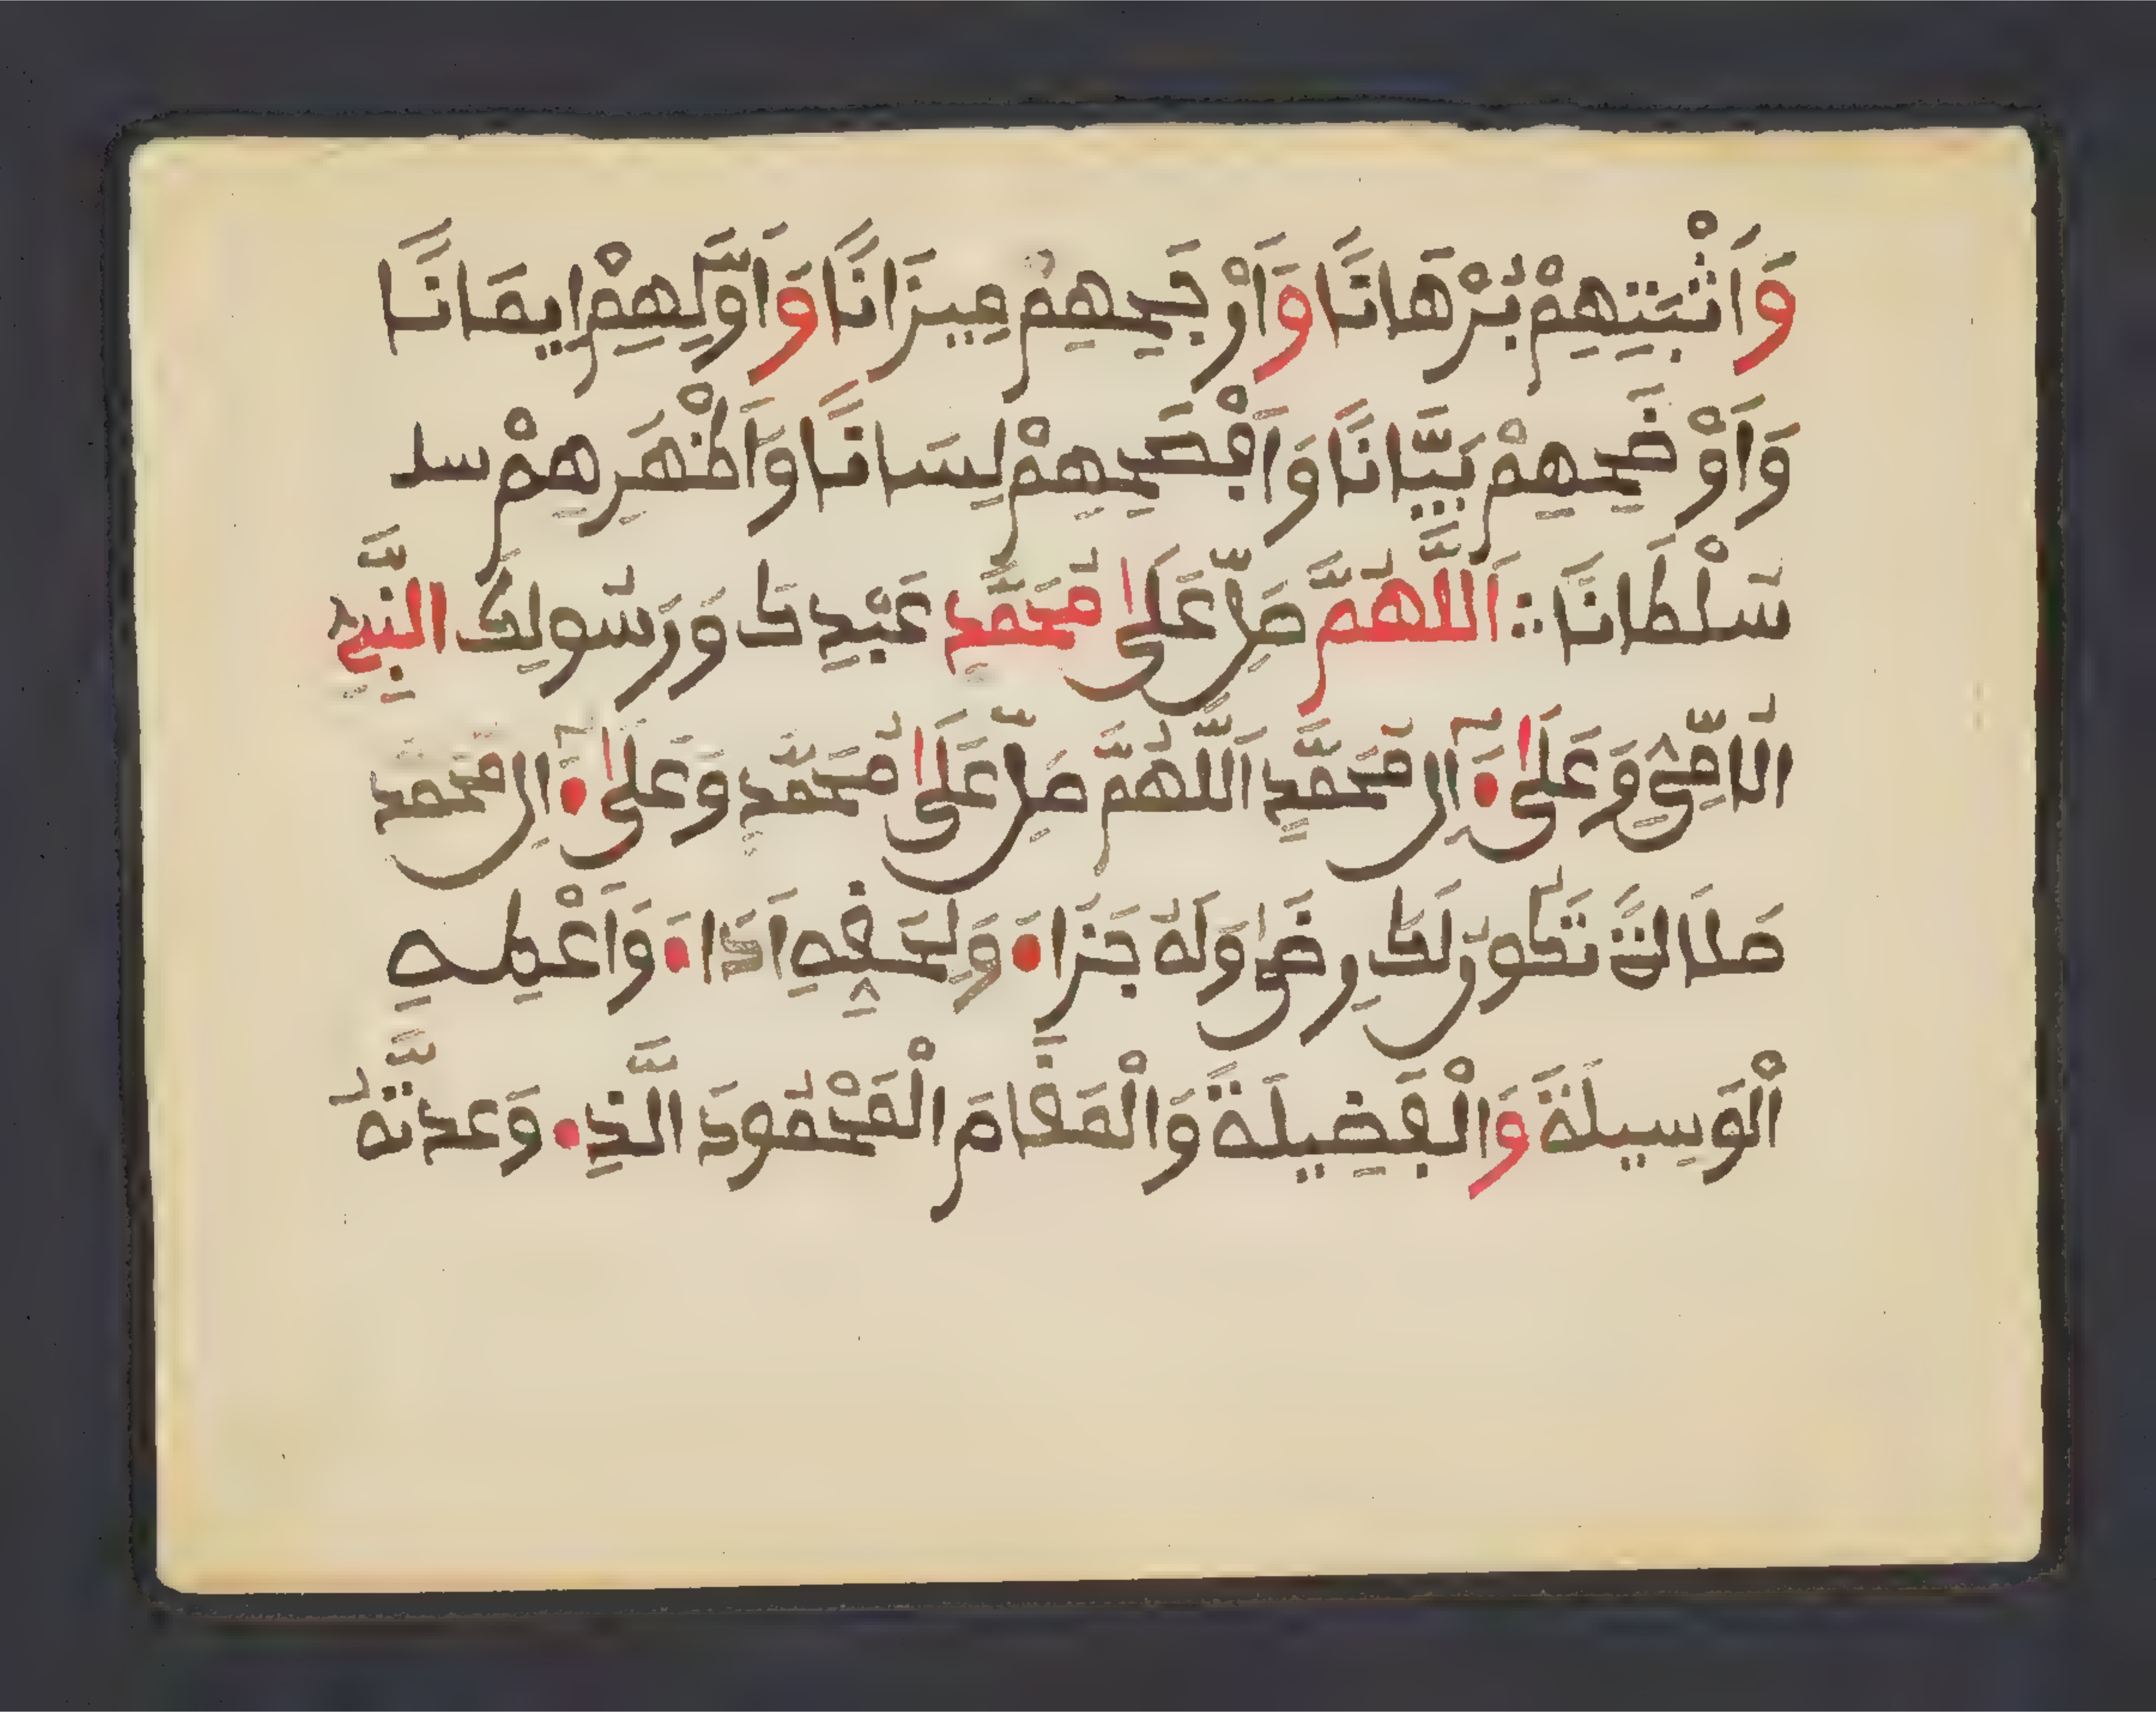 وَاَثْبَتِهِمْ بُرْهَانًا وَاَرْجَحِهِمْ مِيزَانًا وَاَوَّلِهِمْ اِيمَانًا
وَاَوْضَحِهِمْ بَيَّانًا وَاَفْصَحِهِمْ لِسَانًا وَاَظْهَرِهِمْ سد
سُلْطَانًا اَللَّهُمَّ صَلِّ عَلَى مُحَمَّدٍ عَبْدِكَ وَرَسُولِكَ النَّبِيِّ
الُامِّيِّ وَعَلَى ءَالِ مُحَمَّدٍ اَللَّهُمَّ صَلِّ عَلَى مُحَمَّدٍ وَعَلَى ءَالِ مُحَمَّد
صَلَاةً تَكُونُ لَكَ رِضًى وَلَهُ جَزَاءً وَلِحَقِّهِ اَدَاءً وَاَعْطِهِ
اَلْوَسِيلَةَ وَالْفَضِيلَةَ وَالْمَقَامَ الْمَحْمُودَ الَّذِے وَعَدتَّهُ